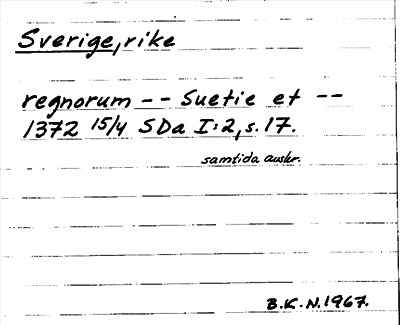 Sverige, rike
regnorum -- Suetie et --
1372 15/4 SDa I:2, s. 17.
samtida auskr.
B.K.N. 1967.